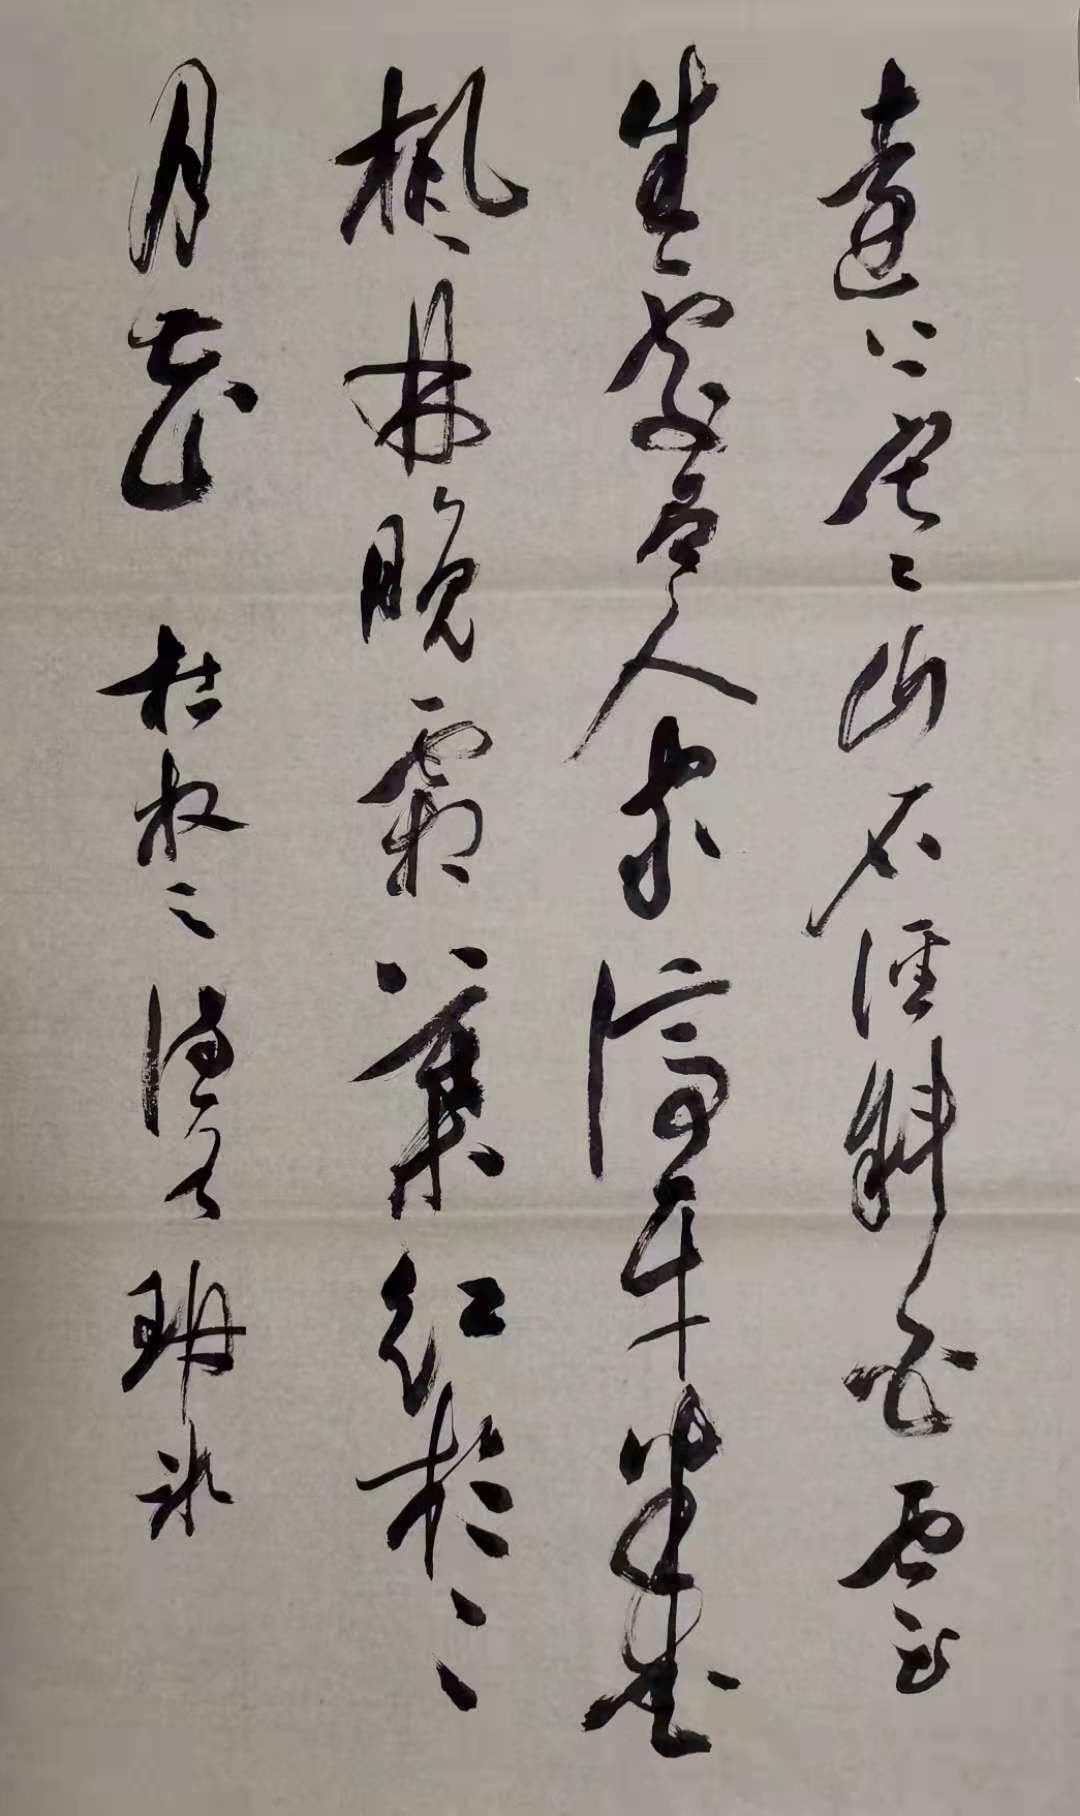 遠上寒山石徑斜白雲
生處有人家停車坐愛
楓林晚霜葉紅於二
月花 杜牧之